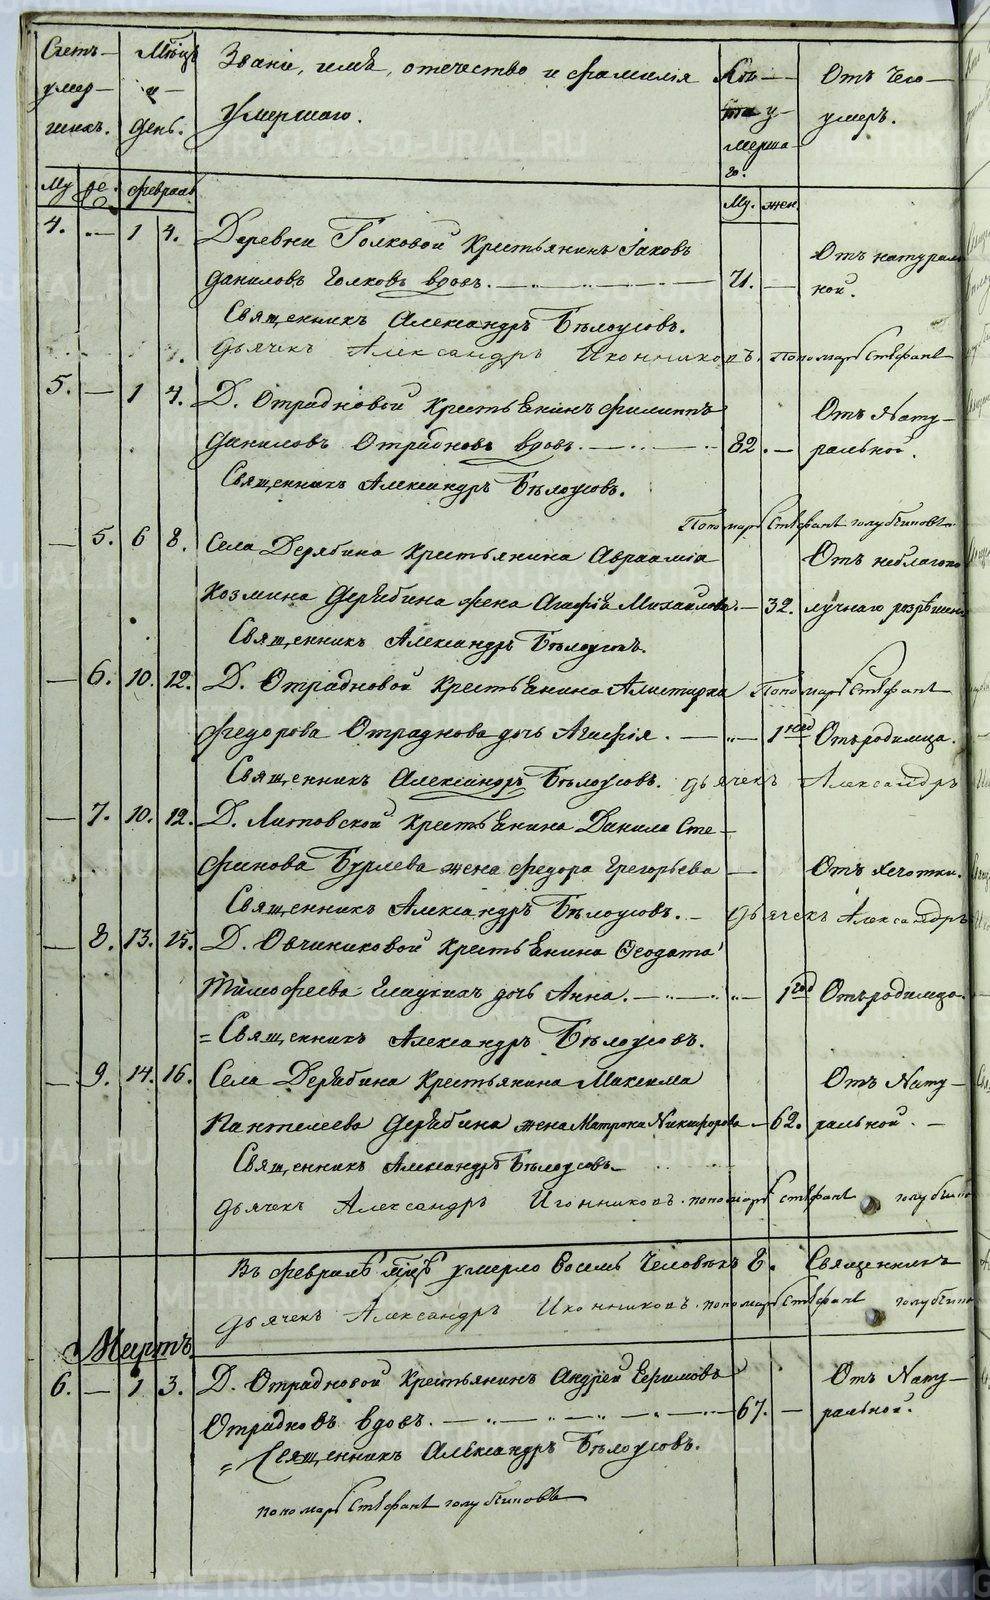 Счетъ умер- шихъ.
Мѣсяцъ и день.
Званіе, имѣ, отечество и фамилія
Умершаго.
Отъ чего умеръ.
Му. же. февраль
Му. жен.
4. — 1 4. Деревни Голковой Крестьянинъ Іаковъ
Даниловъ Голковъ вдовъ. 71. — Отъ натураль-
ной.
Священникъ Александръ Бѣлоусовъ.
Дьячекъ Александръ Иконниковъ. Пономарь Стефанъ
5. — 1 4. Д. Отрадновой Крестьянинъ Филиппъ
Даниловъ Отрадновъ вдовъ. 82. — Отъ Нату-
ральной.
Священникъ Александръ Бѣлоусовъ.
Пономарь Стефанъ Голубчиковъ
— 5. 6 8. Села Дерябина Крестьянина Авраамія
Козмина Дерябина жена Агафія Михайлова. — 32. Отъ неблагопо-
лучнаго розрѣшен
Священникъ Александръ Бѣлоусовъ.
— 6. 10. 12. Д. Отрадновой Крестьянина Алистарха Пономарь Стефанъ
Федорова Отраднова дочь Агафія. — 1 нед Отъ родимца.
Священникъ Александръ Бѣлоусовъ. Дьячекъ Александръ
— 7. 10. 12. Д. Литовской Крестьянина Данила Сте-
фанова Бурлева жена Федора Григорьева — Отъ чахотки.
Священникъ Александръ Бѣлоусовъ. — Дьячекъ Александръ
— 8. 13. 15. Д. Овчиниковой Крестьянина Феодата
Тимофеева дочь Анна. — 1 год Отъ родимца.
= Священникъ Александръ Бѣлоусовъ.
— 9. 14. 16. Села Дерябина Крестьянина Максима
Пантелеева Дерябина жена Матрона Никифорова — 62. Отъ Нату-
ральной. —
Священникъ Александръ Бѣлоусовъ
Дьячекъ Александръ Иконниковъ. пономарь Стефанъ голубчико
Въ февралѣ мцѣ умерло восемь Человѣкъ 8. Священникъ
Дьячекъ Александръ Иконниковъ. пономарь Стефанъ голубчико
Мартъ.
6. — 1. 3. Д. Отрадновой Крестьянинъ Андрей Ефимовъ
Отрадновъ вдовъ. 67. — Отъ Нату-
ральной.
= Священникъ Александръ Бѣлоусовъ.
пономарь Стефанъ голубчиковъ
METRIKI.GASO-URAL.RU